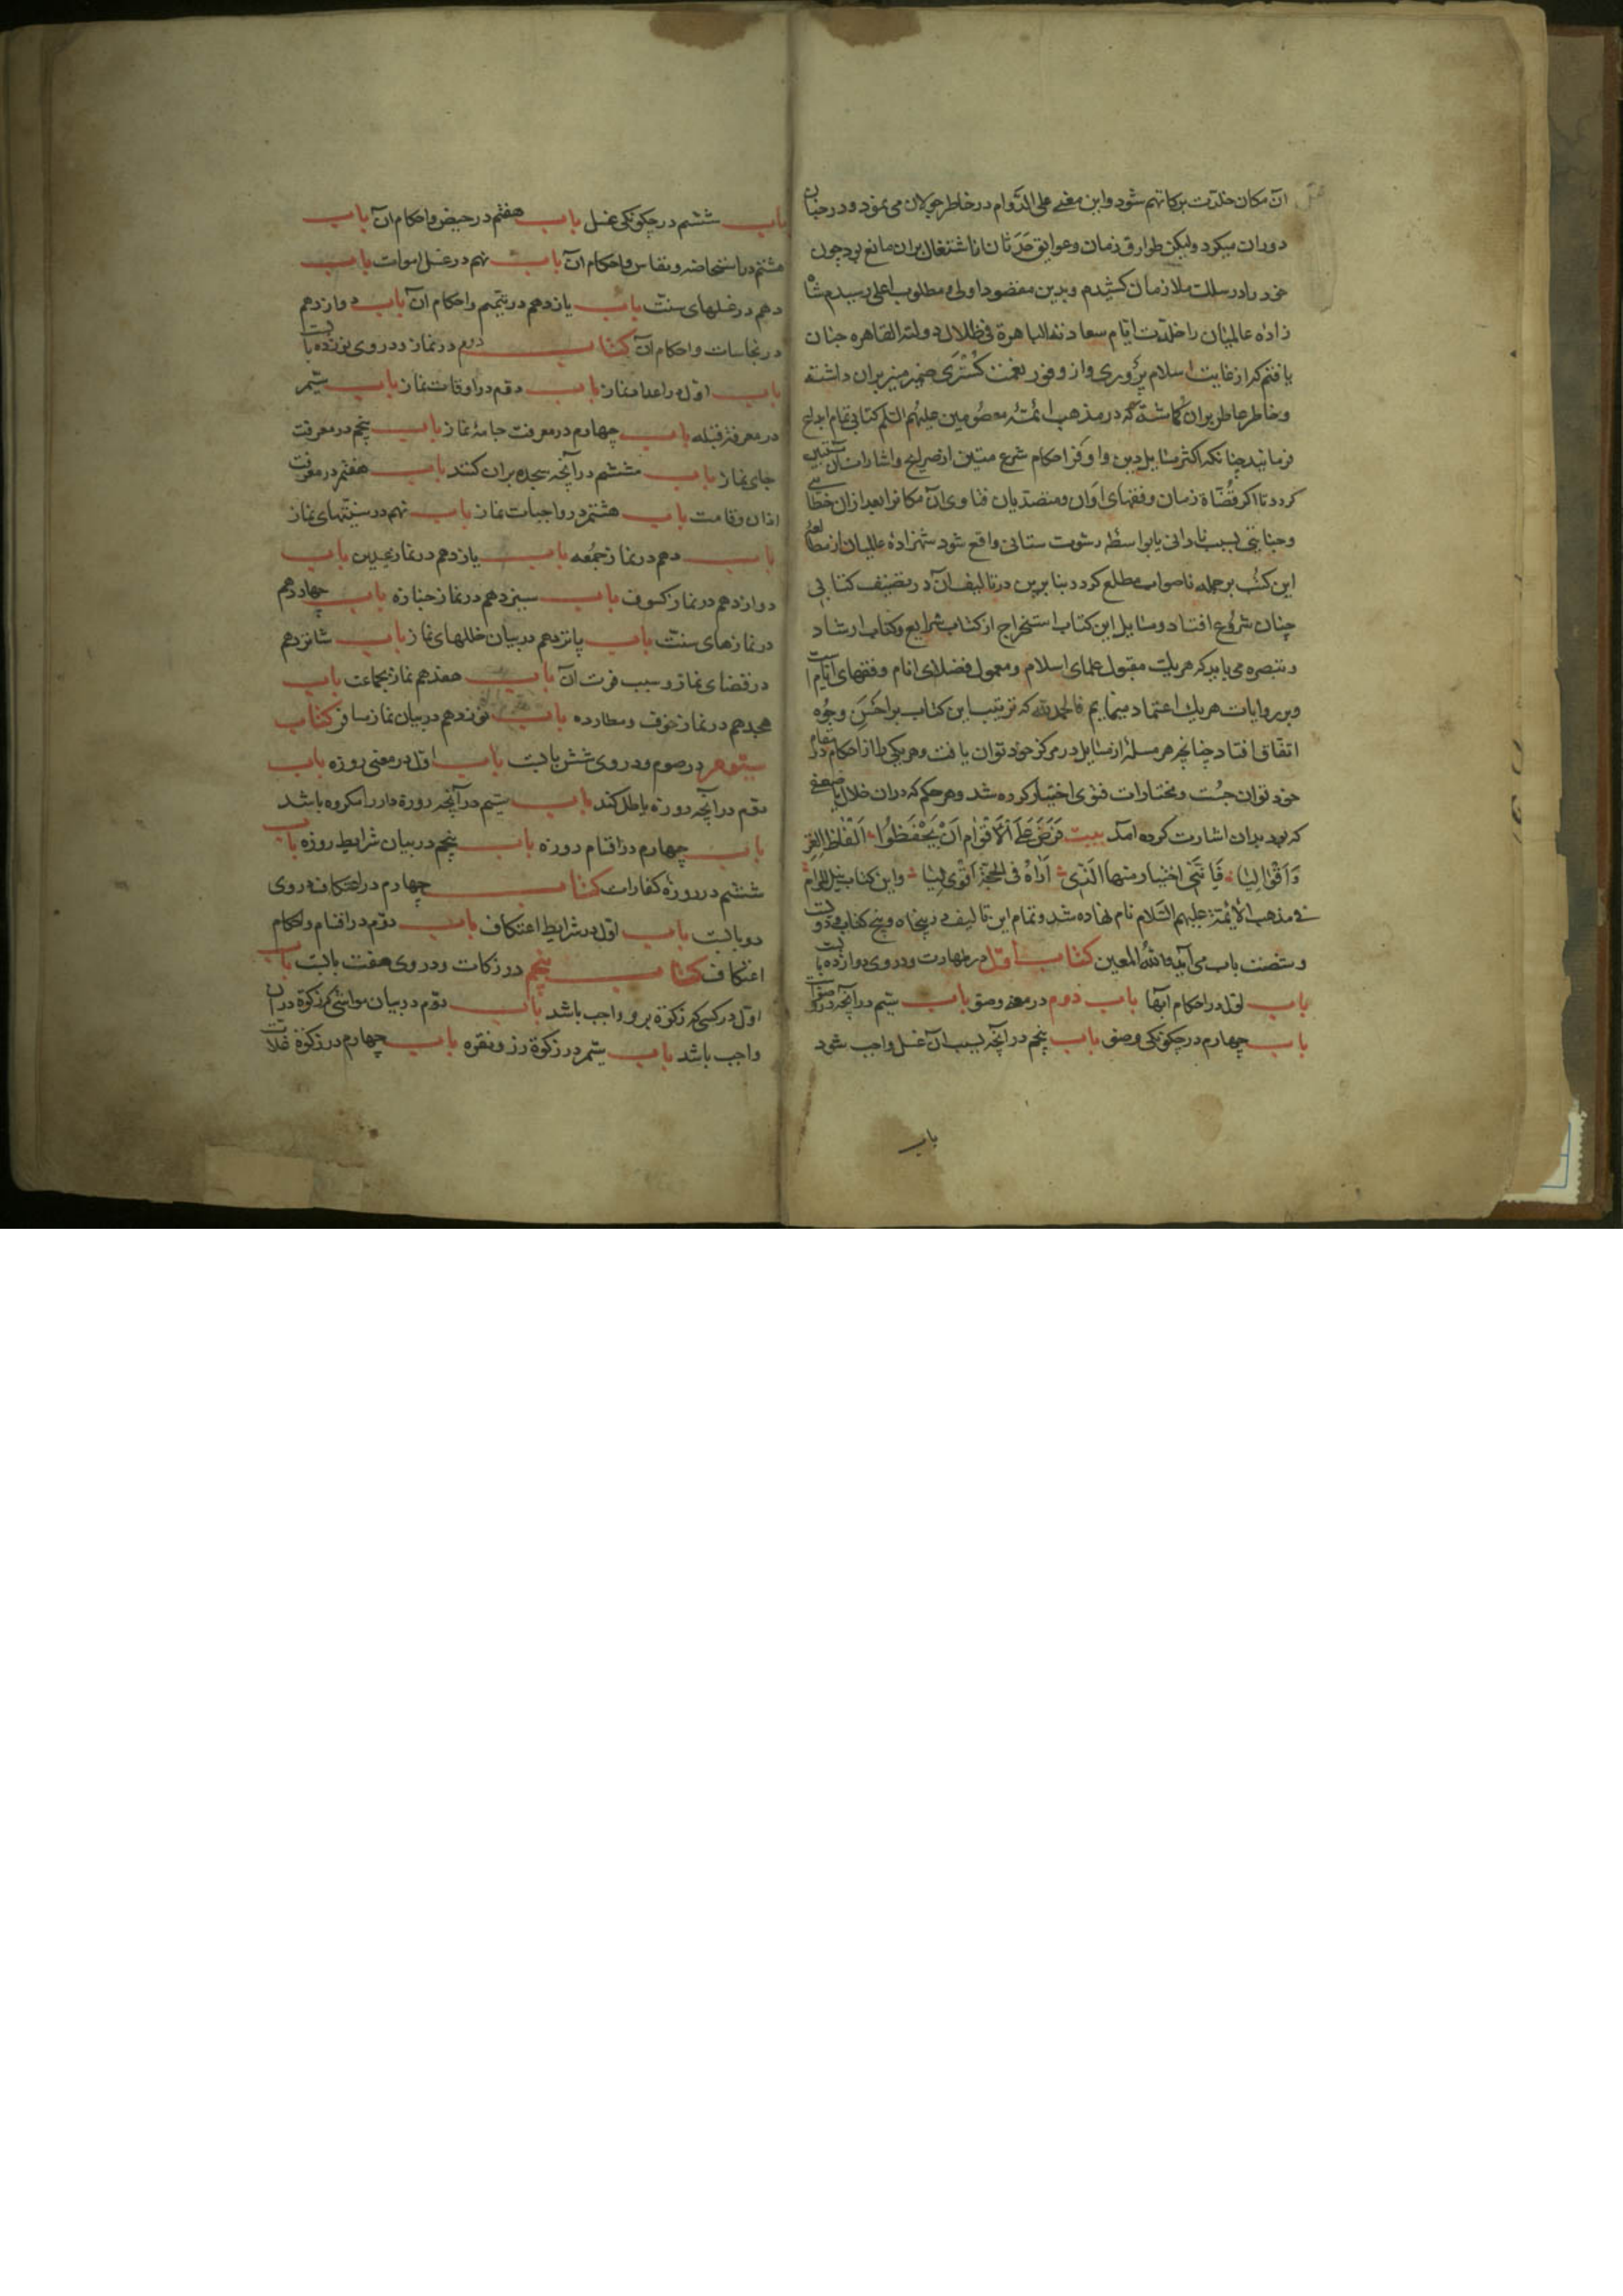 آن مکان خلدت برکاتهم شود و این معنی علی الدوام در خاطر جولان می نمود و در جنان
دوران میکرد ولیکن طوارق زمان و عوایق حدثان از اشتغال بران مانع بود چون
خود را در سلک ملازمان کشیدم و بدین مقصود اولی و مطلوب اعلی رسیدم شاه
زاده عالمیان را خلدت ایام سعادته الباهرة فی ظلال دولته القاهره چنان
یافتم که از غایت اسلام پروری و از وفور نعمت گستری ضمیر منیر بران داشته
و خاطر عاطر بران گماشته که در مذهب ائمتهٔ معصومین علیهم السلم کتابی تمام ابداع
فرمایند چنانکه اکثر مسایل دین و اوفر احکام شرع متین از صرایح و اشارات آن مستبین
گردد تا اگر قضاة زمان و فقهای اوان و متصدیان فتاوی آن مکانرا بعد ازان خطائی
و جنایتی بسبب نادانی یا بواسطهٔ رشوت ستانی واقع شود شهزادهٔ عالمیان از مطالعهٔ
این کتب بر جمله ناصواب مطلع گردد بنابرین در تالیف آن در تصنیف کتابی
چنان شروع افتاد و مسایل این کتاب استخراج از کتاب شرایع و کتاب ارشاد
و تبصره می باید که هریک مقبول علمای اسلام و معمول فضلای انام و فقهای ایام است
و بر روایات هریک اعتماد مینمایم فالحمد لله که ترتیب این کتاب بر احسن وجوه
اتفاق افتاد چنانچه هر مسلهٔ از مسایل در مرکز خود توان یافت و هریکی را از احکام در مقام
خود توان جست و مختارات فتوی اختیار کرده شد و هر حکم که دران خلاف یا ضعفی
که بود بدان اشارت کرده آمد بیت فرض علی الاقوام ان یحفظوا الفاظ الغر
و اقوالیا فاننی اختیار منها الذی اراه فی الحجة اقوی لیا و این کتاب بنیل المرام
فی مذهب الائمة علیهم السلام نام نهاده شد و تمام این تالیف در پنجاه و پنج کتاب و دویست
و شصت باب می آید والله المعین کتاب اول در طهارت و دروی دوازده بابست
باب اول در احکام آبها باب دوم در معنی وضو باب سیم در آنچه در وضو
باب چهارم در چگونگی وضو باب پنجم در آنچه بسبب آن غسل واجب شود
باب
باب ششم در چگونگی غسل باب هفتم در حیض و احکام آن باب
هشتم در استحاضه و نفاس و احکام آن باب نهم در غسل اموات باب
دهم در غسلهای سنت باب یازدهم در تیمم و احکام آن باب دوازدهم
در نجاسات و احکام آن کتاب دوم در نماز و دروی نوزده بابست
باب اول در اعداد نماز باب دوم در اوقات نماز باب سیم
در معرفة قبله باب چهارم در معرفت جامهٔ نماز باب پنجم در معرفت
جای نماز باب ششم در آنچه سجده بران کنند باب هفتم در معرفت
اذان و قامت باب هشتم در واجبات نماز باب نهم در سنتهای نماز
باب دهم در نماز جمعه باب یازدهم در نماز عیدین باب
دوازدهم در نماز کسوف باب سیزدهم در نماز جنازه باب چهاردهم
در نمازهای سنت باب پانزدهم در بیان خللهای نماز باب شانزدهم
در قضای نماز و سبب فوت آن باب هفدهم نماز بجماعت باب
هجدهم در نماز خوف و مطارده باب نوزدهم در بیان نماز مسافر کتاب
سیوم در صوم و دروی شش بابست باب اول در معنی روزه باب
دوم در آنچه روزه باطل کند باب سیم در آنچه روزه دار را مکروه باشد
باب چهارم در اقسام روزه باب پنجم در بیان شرایط روزه باب
ششم در روزهٔ کفارات کتاب چهارم در اعتکاف و دروی
دو بابست باب اول در شرایط اعتکاف باب دوم در اقسام و احکام
اعتکاف کتاب پنجم در زکات و دروی هفت بابست باب
اول در کسی که زکوة برو واجب باشد باب دوم در بیان مواشی که زکوة دران
واجب باشد باب سیم در زکوة زر و نقره باب چهارم در زکوة غلات